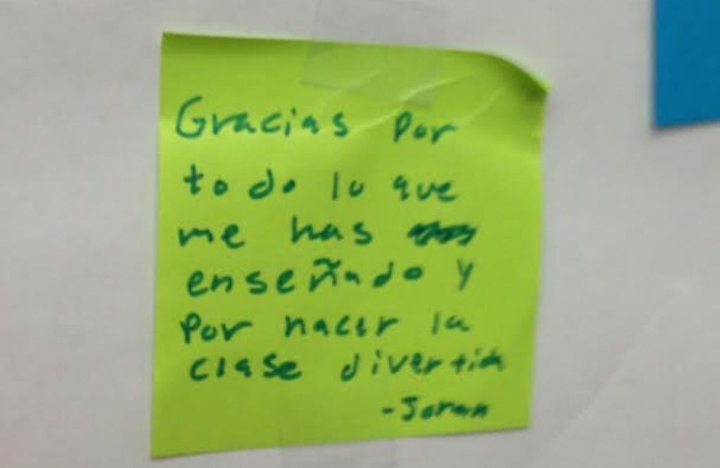 Gracias Por
todo lo que
me has
enseñado y
Por hacer la
clase divertida